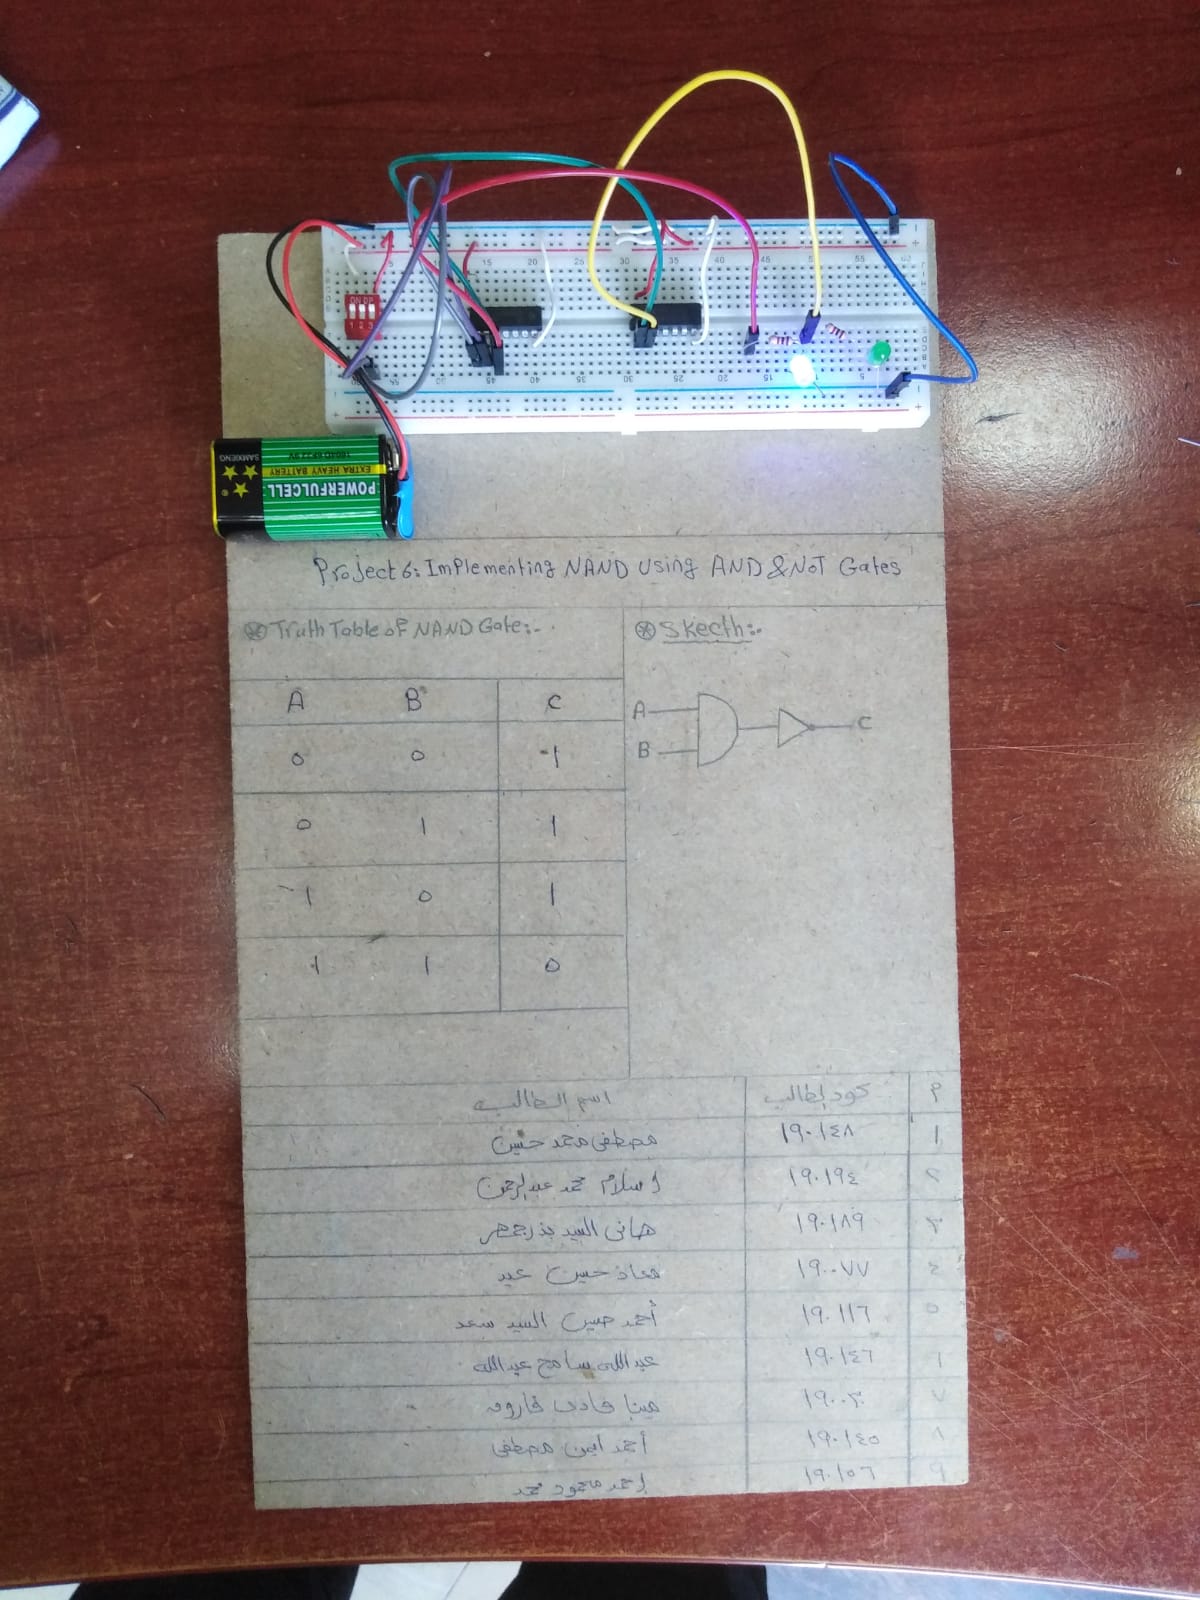 ON DP
1 2 3
POWERFULCELL
EXTRA HEAVY BATTERY
SAMXIENG
Project 6: Implementing NAND Using AND & NOT Gates
Truth Table of NAND Gate:-
A B C
0 0 1
0 1 1
1 0 1
1 1 0
Skecth:-
A
B
C
م كود الطالب اسم الطالب
١ ١٩٠١٤٨ مصطفى محمد حسين
٢ ١٩٠١٩٤ اسلام محمد عبدالرحمن
٣ ١٩٠١٨٩ هانى السيد
٤ ١٩٠٠٧٧ معاذ حسين عيد
٥ ١٩٠١١٦ أحمد حسين السيد سعد
٦ ١٩٠١٤٦ عبدالله سامح عبدالله
٧ ١٩٠٠٣٠ مينا فاروق
٨ ١٩٠١٤٥ أحمد ايمن مصطفى
٩ ١٩٠١٥٦ احمد محمود محمد